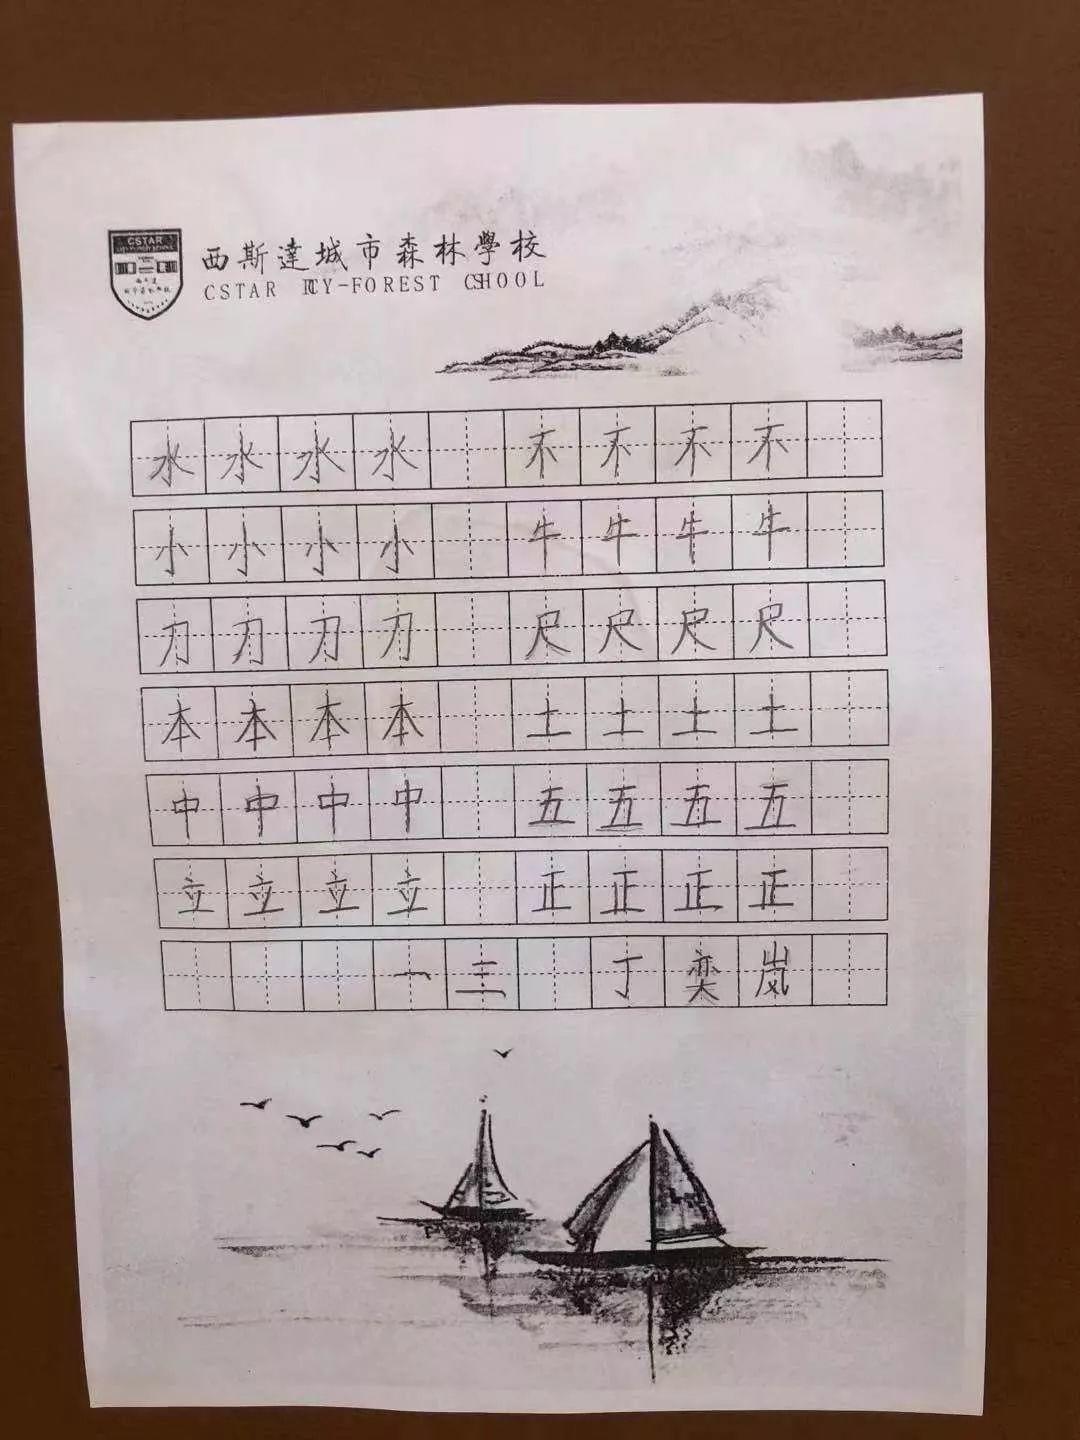 CSTAR
西斯達城市森林學校
CSTAR ICY-FOREST CSHOOL
水水水水 不不不不
小小小小 牛牛牛牛
刀刀刀刀 尺尺尺尺
本本本本 土土土土
中中中中 五五五五
立立立立 正正正正
一三 丁奕岚